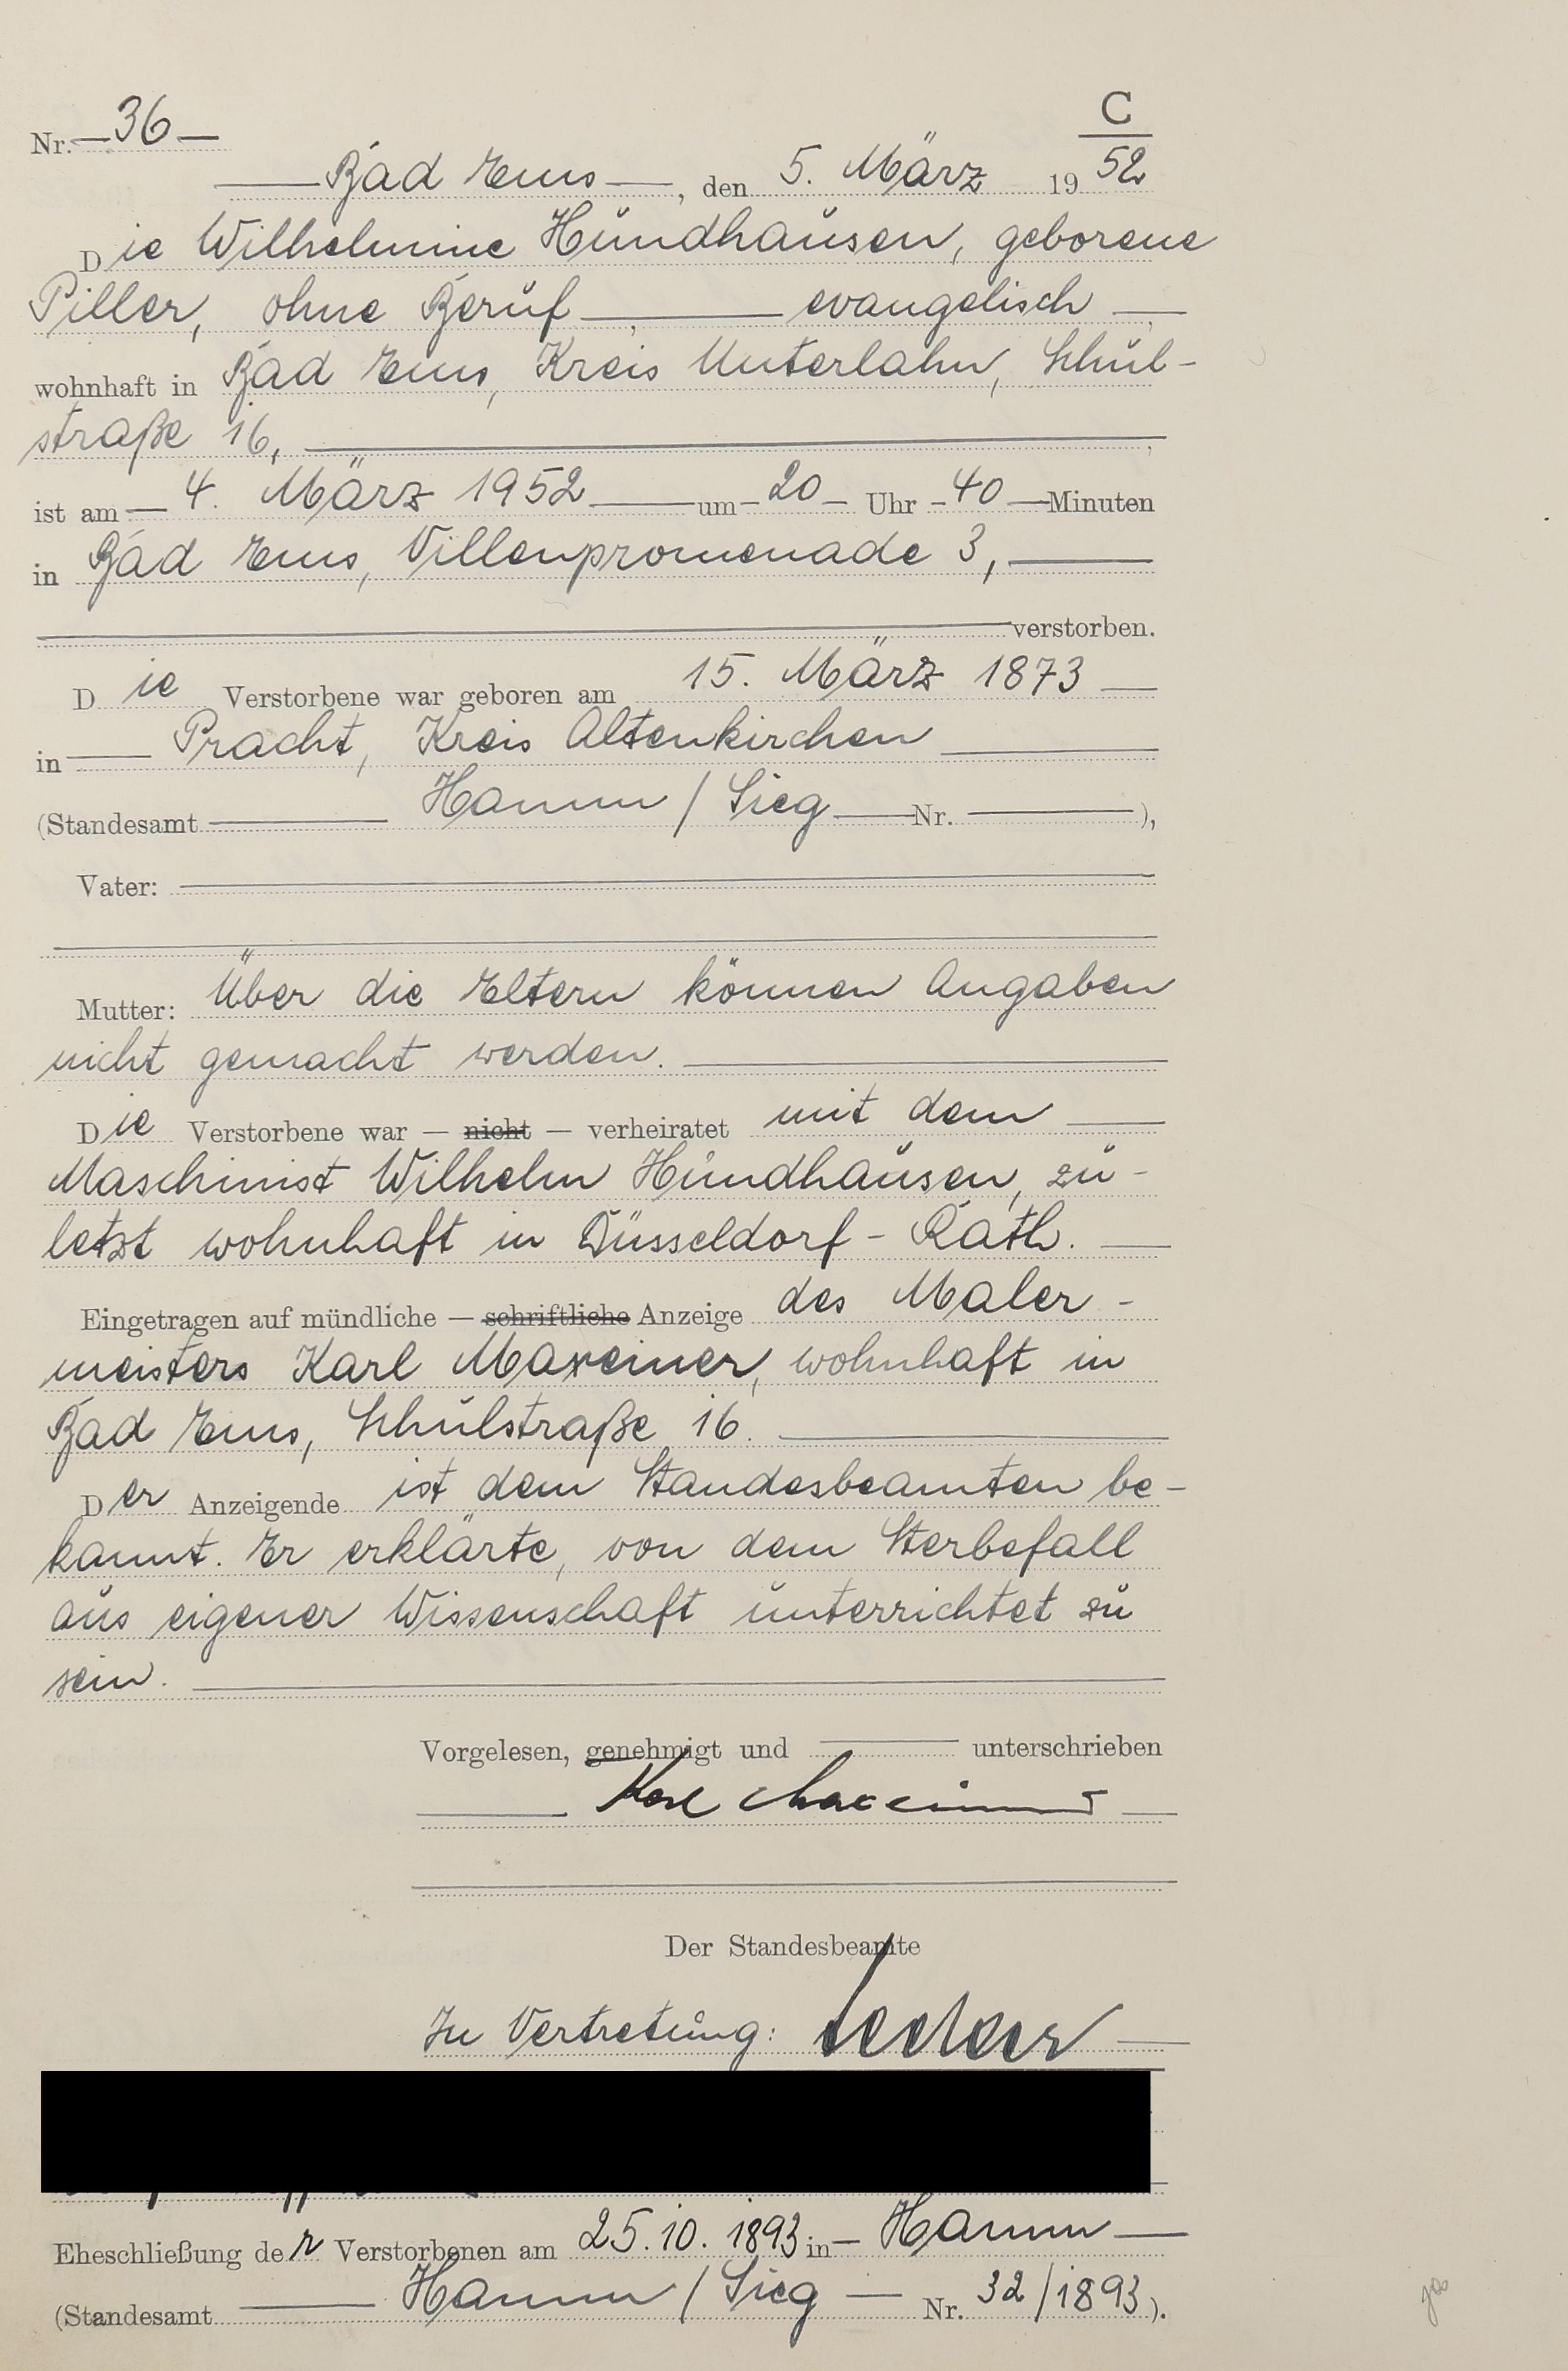 C
Nr. 36
52
Bad Ems, den 5. März 1952
Die Wilhelmine Hundhausen, geborene
Piller, ohne Beruf, evangelisch,
wohnhaft in Bad Ems, Kreis Unterlahn, Schul-
straße 16,
ist am 4. März 1952 um 20 Uhr 40 Minuten
in Bad Ems, Villenpromenade 3,
verstorben.
Die Verstorbene war geboren am 15. März 1873
in Pracht, Kreis Altenkirchen
(Standesamt Hamm / Sieg Nr. ),
Vater:
Mutter: Über die Eltern können Angaben
nicht gemacht werden.
Die Verstorbene war — nicht — verheiratet mit dem
Maschinist Wilhelm Hundhausen, zu-
letzt wohnhaft in Düsseldorf - Rath.
Eingetragen auf mündliche — schriftliche Anzeige des Maler-
meisters Karl Maxeiner, wohnhaft in
Bad Ems, Schulstraße 16.
Der Anzeigende ist dem Standesbeamten be-
kannt. Er erklärte, von dem Sterbefall
aus eigener Wissenschaft unterrichtet zu
sein.
Vorgelesen, genehmigt und unterschrieben
Karl Maxeiner
Der Standesbeamte
In Vertretung:
Eheschließung der Verstorbenen am 25.10.1893 in Hamm
(Standesamt Hamm / Sieg Nr. 32/1893).